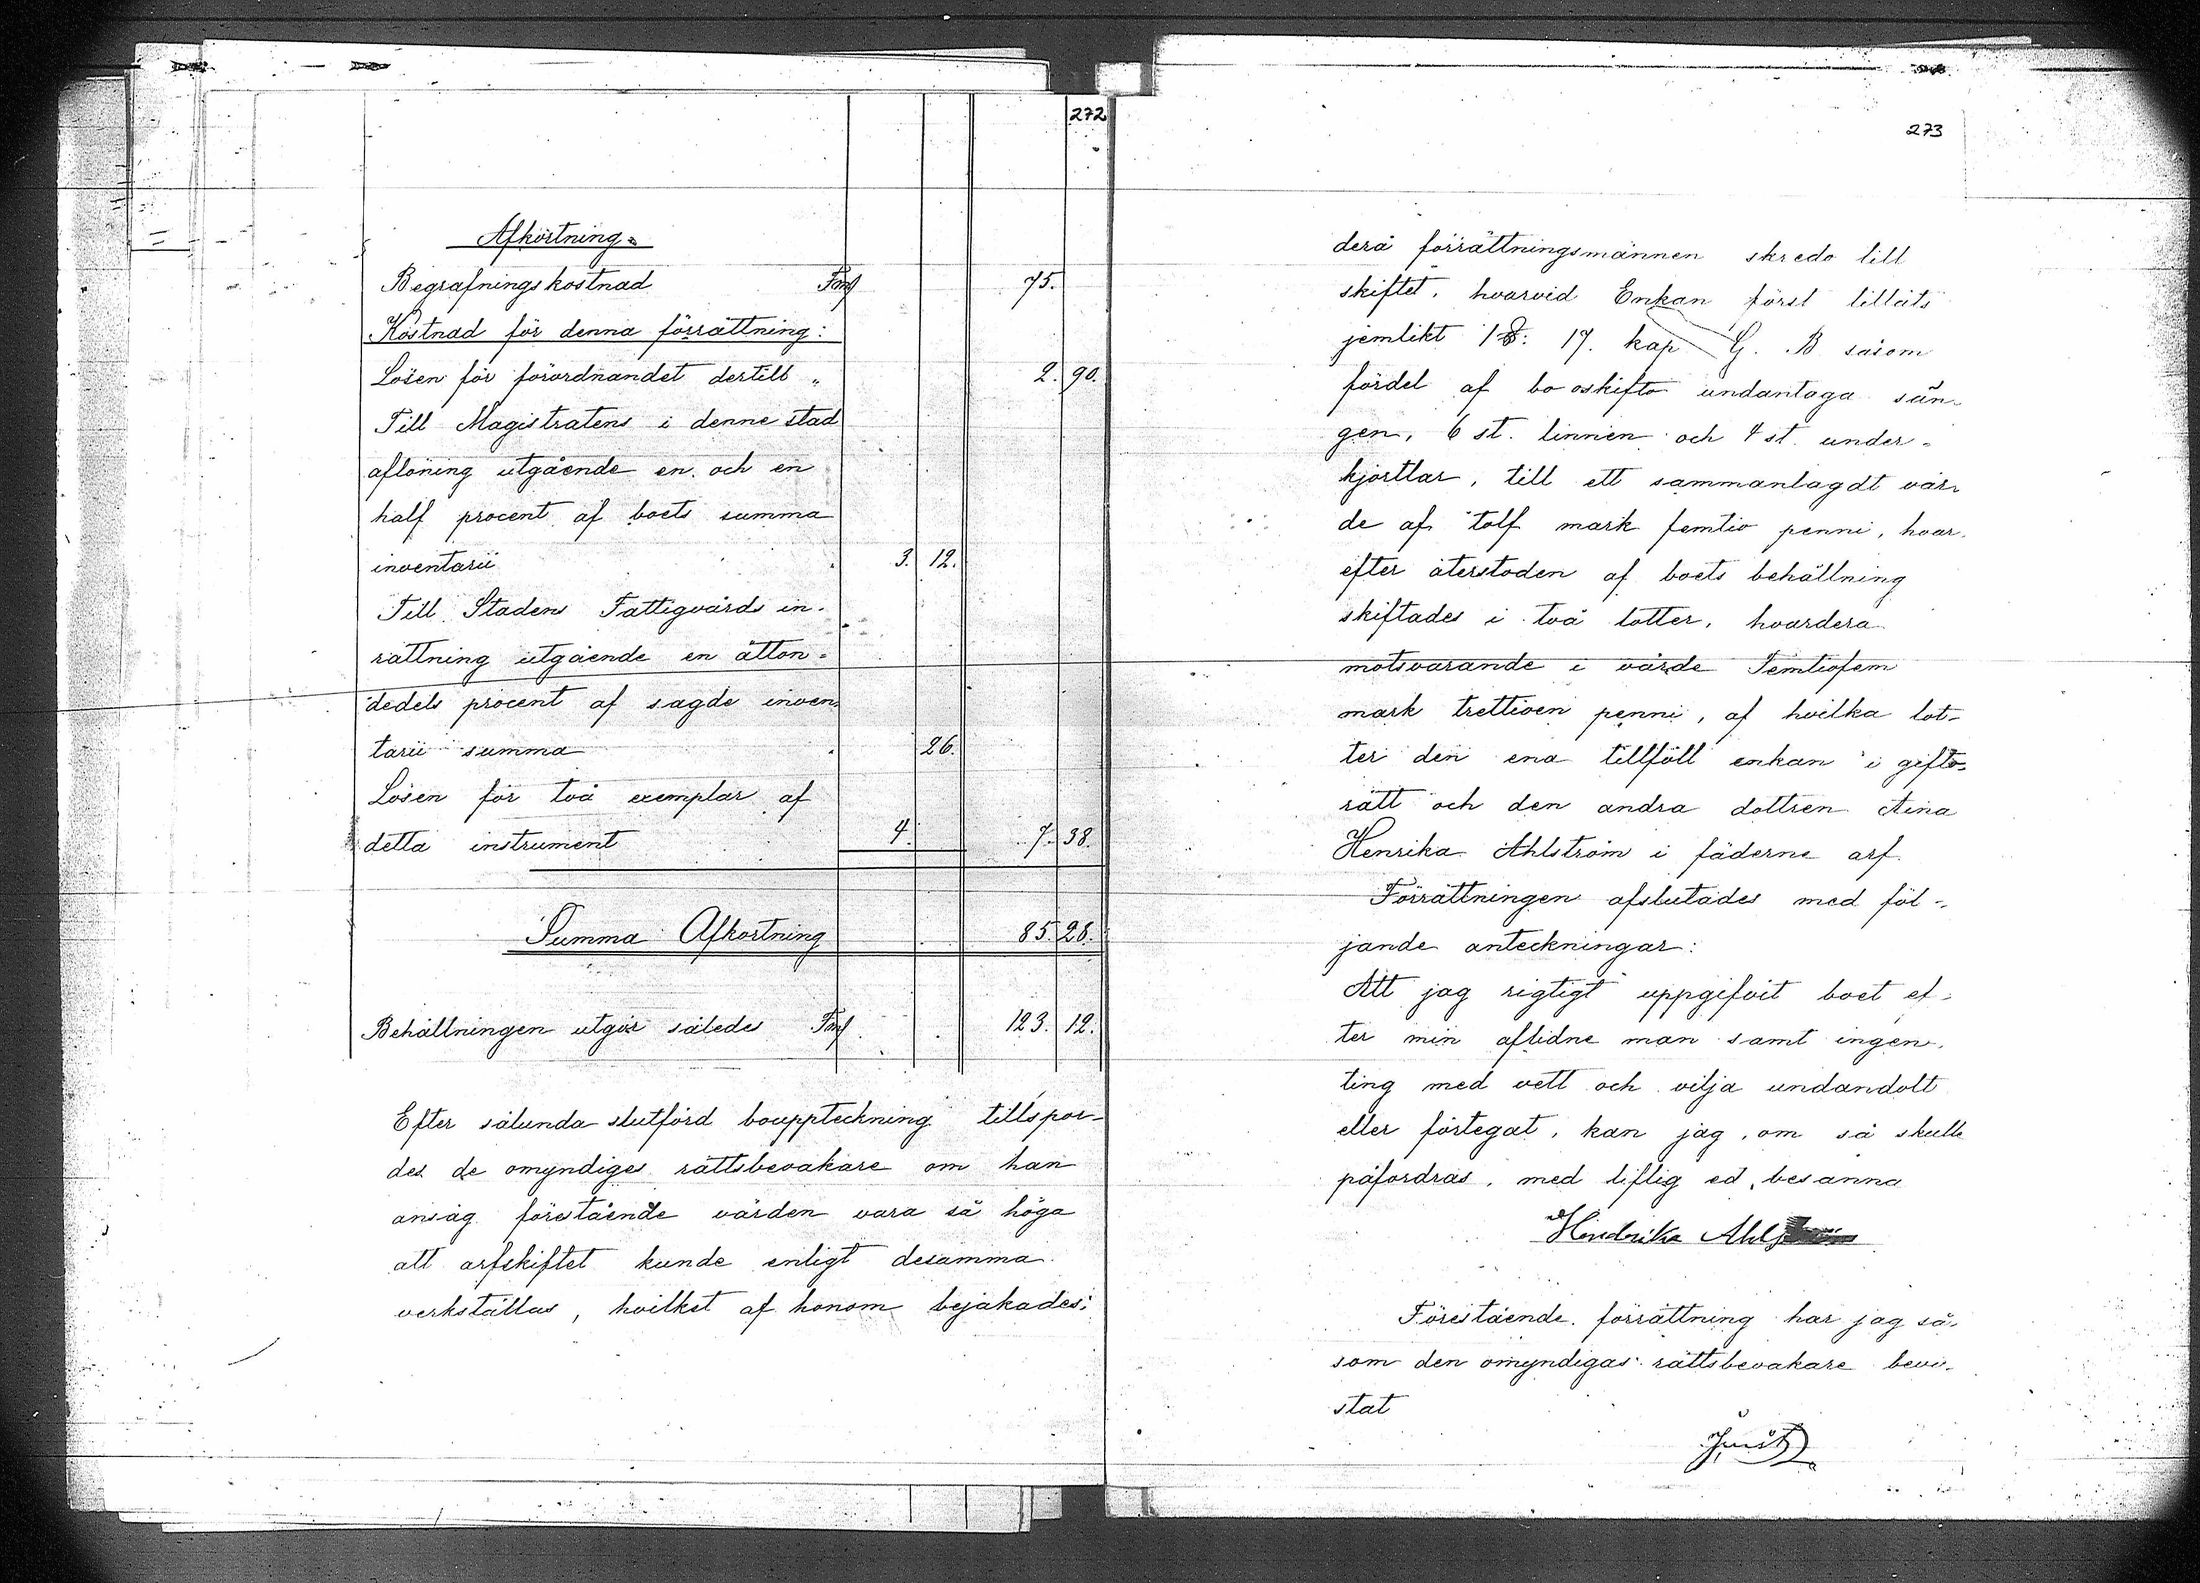 272
Afkortning
Begrafningskostnad Fmf 75.
Kostnad för denna förrättning:
Lösen för förordnandet dertill " 2. 90.
Till Magistratens i denne stad
aflöning utgående en och en
half procent af boets summa
inventarii 3. 12.
Till Stadens Fattigvårds in-
rättning utgående en åtton-
dedels procent af sagde inven-
tarii summa 26.
Lösen för två exemplar af
detta instrument 4. 7. 38.
Summa Afkortning 85. 28.
Behållningen utgör således Fmf 123. 12.
Efter sålunda slutförd bouppteckning tillspor-
des de omyndiges rättsbevakare om han
ansåg förestående värden vara så höga
att arfskiftet kunde enligt desamma
verkställas, hvilket af honom bejakades;
273
derå förrättningsmännen skredo till
skiftet, hvarvid Enkan först tilläts
jemlikt 17. kap G. B såsom
fördel af bo oskifto undantaga sän-
gen, 6 st. linnen och 4 st. under-
kjortlar, till ett sammanlagdt vär-
de af tolf mark femtio penni, hvar-
efter återstoden af boets behållning
skiftades i två lotter, hvardera
motsvarande i värde Femtiofem
mark trettioen penni, af hvilka lot-
ter den ena tillföll enkan i gifto-
rätt och den andra dottren Aina
Henrika Ahlström i fäderne arf.
Förrättningen afslutades med föl-
jande anteckningar:
Att jag rigtigt uppgifvit boet ef-
ter min aflidne man samt ingen-
ting med vett och vilja undandolt
eller förtegat, kan jag, om så skulle
påfordras, med liflig ed, besanna
Hendrika
Förestående förrättning har jag så-
som den omyndigas rättsbevakare bevi-
stat